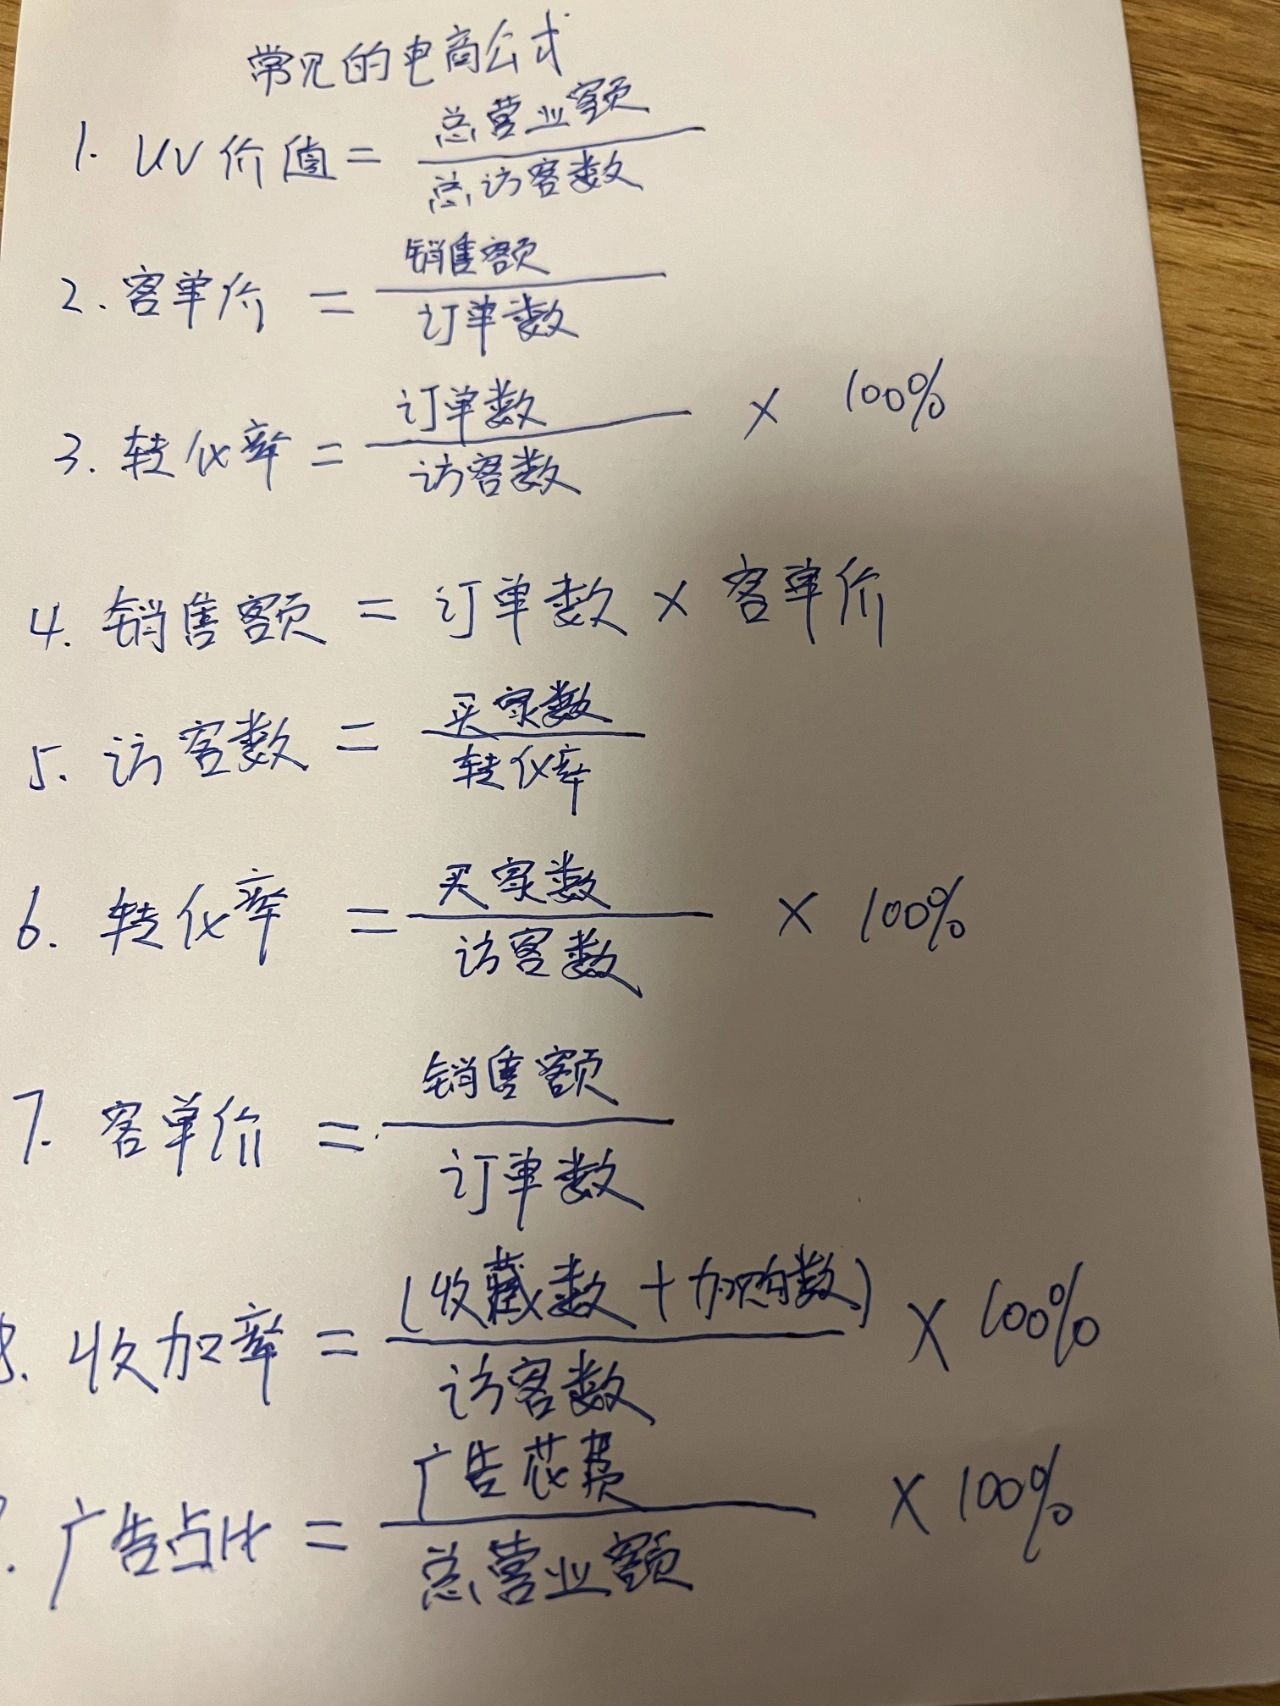 常见的电商公式
1. UV价值 = 总营业额 / 总访客数
2. 客单价 = 销售额 / 订单数
3. 转化率 = 订单数 / 访客数 × 100%
4. 销售额 = 订单数 × 客单价
5. 访客数 = 买家数 / 转化率
6. 转化率 = 买家数 / 访客数 × 100%
7. 客单价 = 销售额 / 订单数
8. 收加率 = (收藏数 + 加购数) / 访客数 × 100%
. 广告占比 = 广告花费 / 总营业额 × 100%